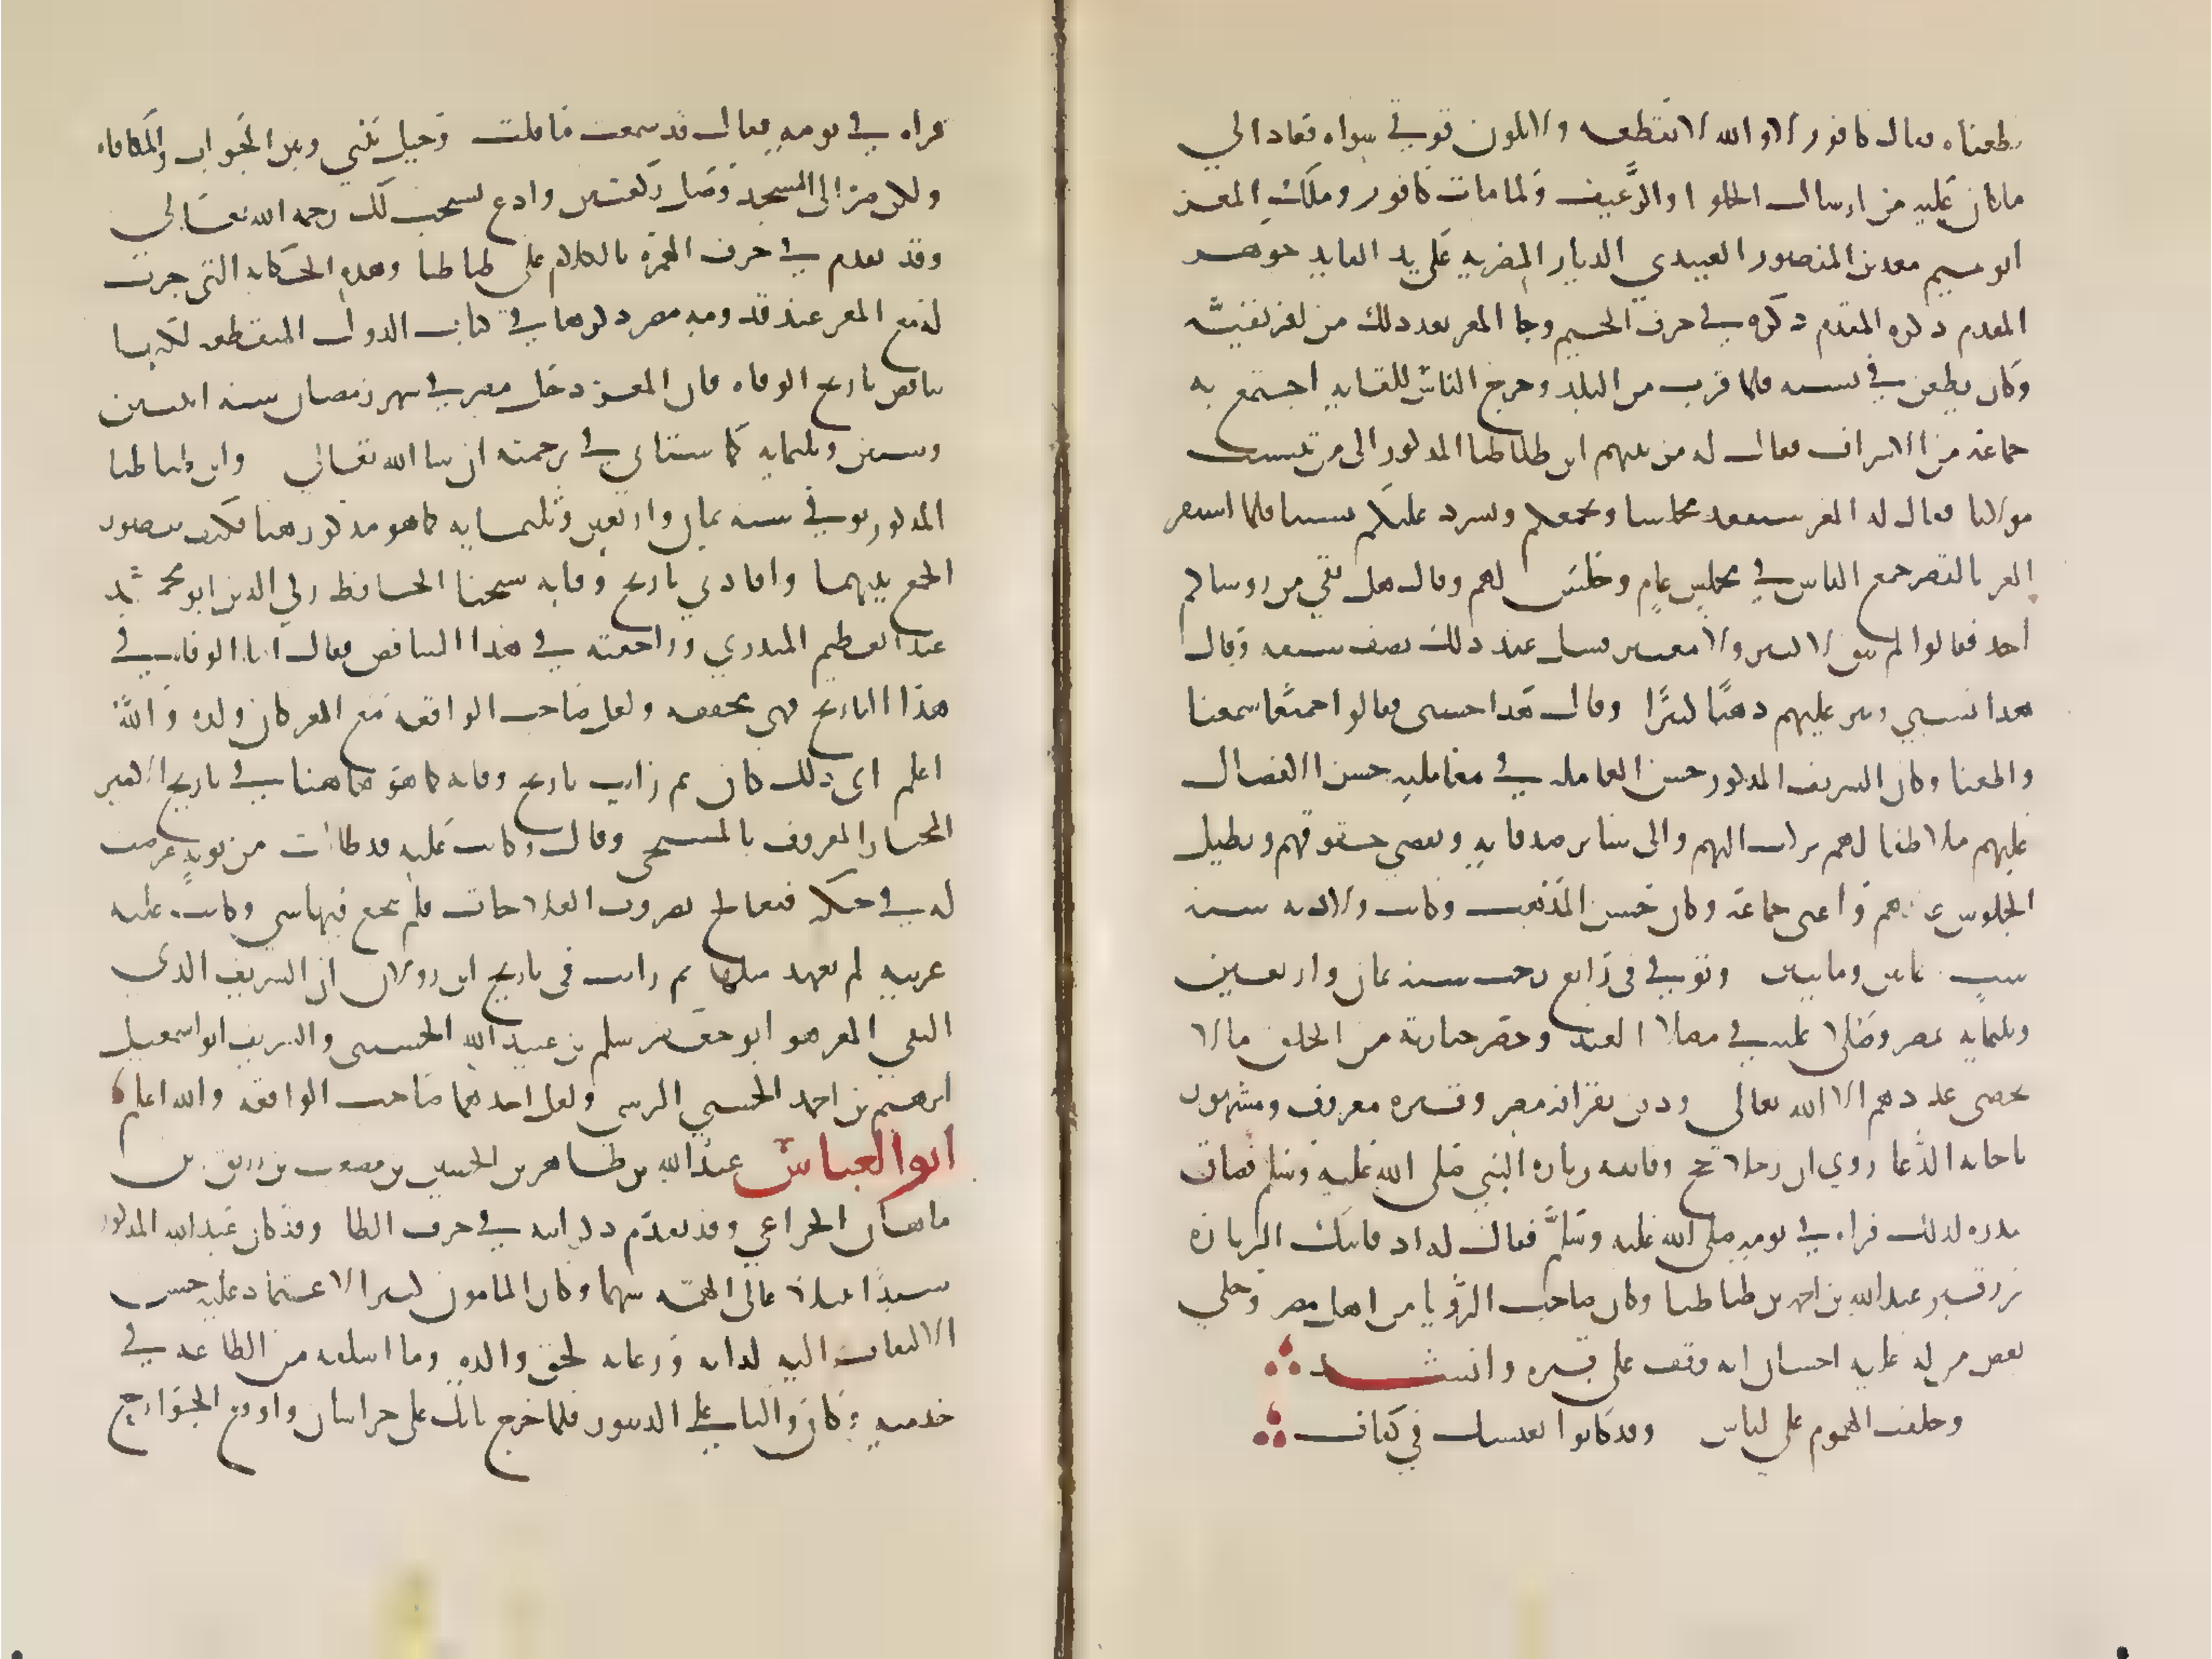 يقطعناه فقال كافور لا والله لا تقطعه ولا يكون قوتي سواه فعاد الى
ما كان عليه من ارسال الحلوا والرغيف ولما مات كافور وملك المعز
ابو تميم معد بن المنصور العبيدي الديار المصريه على يد القايد جوهر
المقدم ذكره المقدم ذكره في حرف الجيم وجا المعز بعد ذلك من افريقية
وكان يطعن في نسبه فلما قرب من البلد وخرج الناس للقايه اجتمع به
جماعة من الاشراف فقال له من بينهم ابن طباطبا المذكور الى من ينتسب
مولانا فقال له المعز سنعقد مجلسا ونجمعكم ونسرد عليكم نسبنا فلما استقر
المعز بالقصر جمع الناس في مجلس عام وجلس لهم وقال هل بقي من روسايكم
احد فقالوا لم يبق الا اليسير ولا معتبر فسل عند ذلك نصف سيفه وقال
هذا نسبي ونثر عليهم ذهبا كثيرا وقال هذا حسبي فقالوا جميعا سمعنا
واطعنا وكان الشريف المذكور حسن المعامله في معامليه حسن الافضال
عليهم ملاطفا لهم يركب اليهم والى ساير اصدقايه ويقضي حقوقهم ويطيل
الجلوس عندهم واغنى جماعة وكان حسن المذهب وكانت ولادته سنة
ست ثمانين ومايتين وتوفي في رابع رجب سنة ثمان واربعين
وثلثمايه بمصر وصلى عليه في مصلا العيد وحضر جنازته من الخلق ما لا
يحصى عددهم الا الله تعالى ودفن بقرافة مصر وقبره معروف ومشهور
باجابه الدعا روي ان رجلا حج وفاتته زيارة النبي صلى الله عليه وسلم فضاق
صدره لذلك فراه في نومه صلى الله عليه وسلم فقال له اذ فاتتك الزيارة
فزر قبر عبد الله بن احمد بن طباطبا وكان صاحب الرؤيا من اهل مصر وحكي
بعض من له عليه احسان انه وقف على قبره وانشد
وخلفت الهموم على اناس وقد كانوا بعيشك في كفاف
فراه في نومه فقال قد سمعت ما قلت وحيل بيني وبين الجواب والمكافاه
ولكن صر الى المسجد وصل ركعتين وادع يستجب لك رحمه الله تعالى
وقد تقدم في حرف الهمزه الكلام على طباطبا وهذه الحكايه التي جرت
له مع المعز عند قدومه مصر ذكرها في كتاب الدول المنقطعه لكنها
تناقض تاريخ الوفاه فان المعز دخل مصر في شهر رمضان سنه اثنين
وستين وثلثمايه كما ستاتي في ترجمته ان شا الله تعالى وابن طباطبا
المذكور توفي سنه ثمان واربعين وثلثمايه كما هو مذكور هنا فكيف يتصور
الجمع بينهما وافادني تاريخ وفاته شيخنا الحافظ زكي الدين ابو محمد
عبد العظيم المنذري وراجعته في هذا التناقض فقال اما الوفاه في
هذا التاريخ فهي محققه ولعل صاحب الواقعه مع المعز كان ولده والله
اعلم اي ذلك كان ثم رايت تاريخ وفاته كما هو هاهنا في تاريخ الامير
المختار المعروف بالمسبحي وقال وكانت عليه قد طالت من توبه عرضت
له في حنكه فتعالج بضروب العلاجات فلم ينجع فيها شي وكانت عليه
غريبه لم يعهد مثلها ثم رايت في تاريخ ابن زولاق ان الشريف الذي
التقى المعز هو ابو جعفر مسلم بن عبيد الله الحسيني والشريف ابو اسمعيل
ابرهيم بن احمد الحسيني الرسي ولعل احدهما صاحب الواقعه والله اعلم
ابو العباس عبد الله بن طاهر بن الحسين بن مصعب بن رزيق بن
ماهان الخزاعي وقد تقدم ذكر ابيه في حرف الطا وقد كان عبد الله المذكور
سيدا نبيلا عالي الهمه شهما وكان المامون كثير الاعتماد عليه حسن
الالتفات اليه لذاته ورعايه لحق والده وما اسلفه من الطاعه في
خدمته وكان واليا على الدينور فلما خرج بابك على خراسان واوقع الخوارج